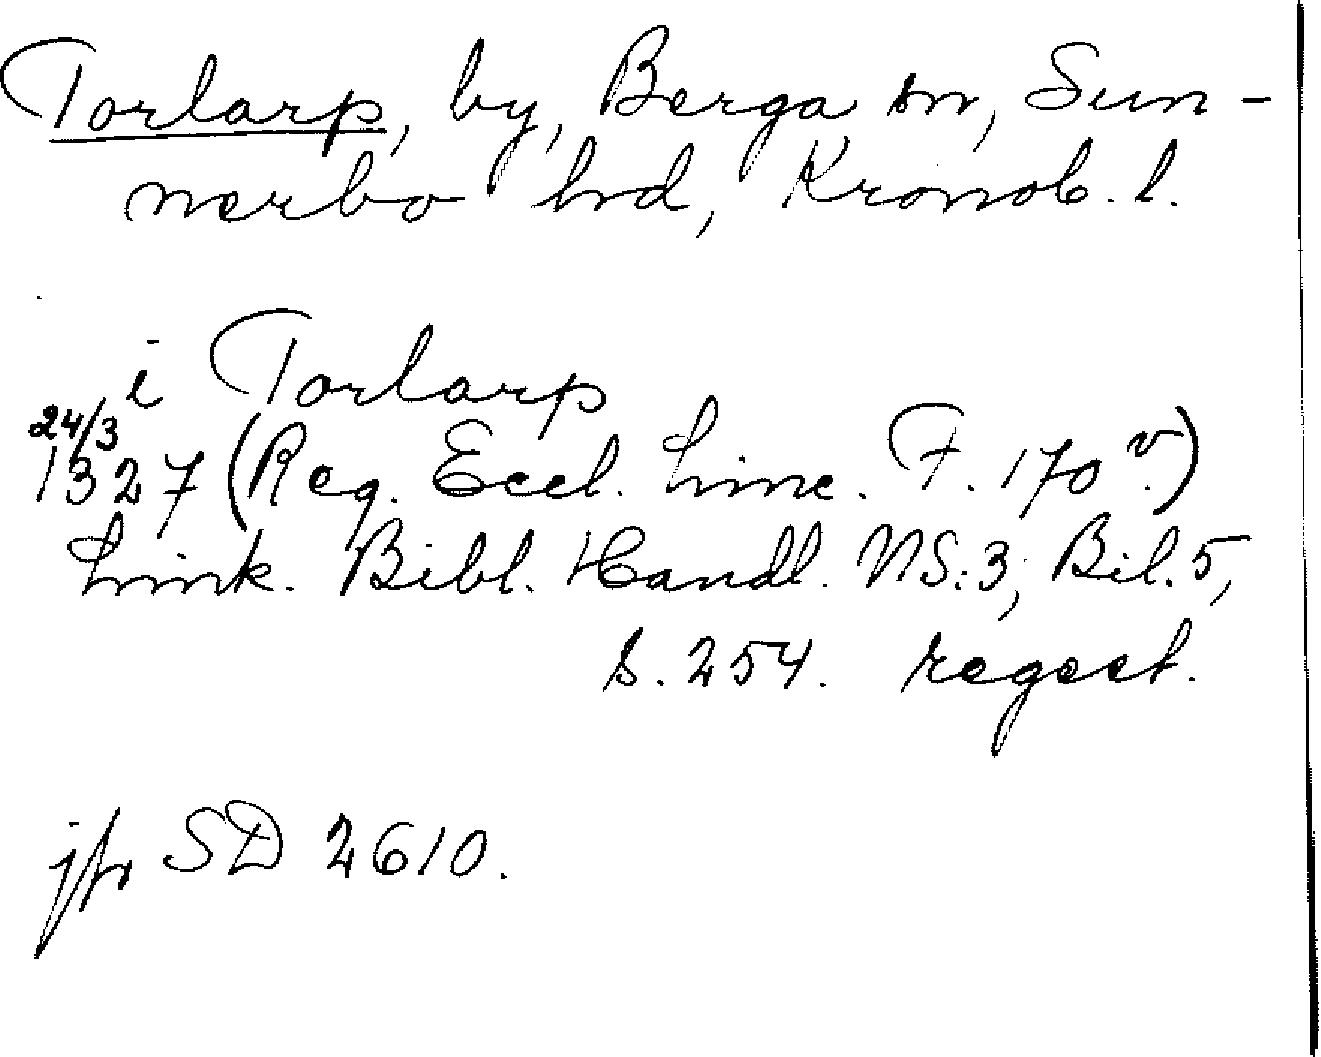 Torlarp, by, Berga sn, Sun-
nerbo hd, Kronob. l.
i Torlarp
24/3
1327 (Reg. Eccl. Linc. F. 170 v.)
Link. Bibl. Handl. NS:3, Bil. 5,
s. 254. regest.
jfr SD 2610.